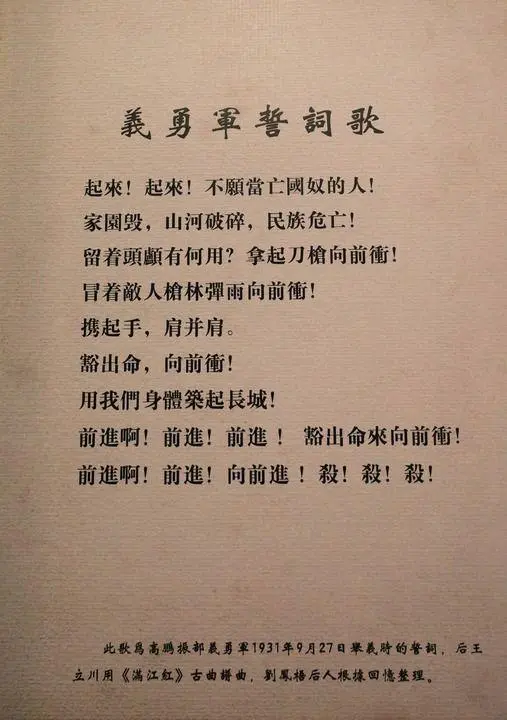 義勇軍誓詞歌
起來！起來！不願當亡國奴的人！
家園毁，山河破碎，民族危亡！
留着頭顱有何用？拿起刀槍向前衝！
冒着敵人槍林彈雨向前衝！
携起手，肩并肩。
豁出命，向前衝！
用我們身體築起長城！
前進啊！前進！前進！豁出命來向前衝！
前進啊！前進！向前進！殺！殺！殺！
此歌爲高鵬振部義勇軍1931年9月27日舉義時的誓詞，后王
立川用《滿江紅》古曲譜曲，劉鳳梧后人根據回憶整理。